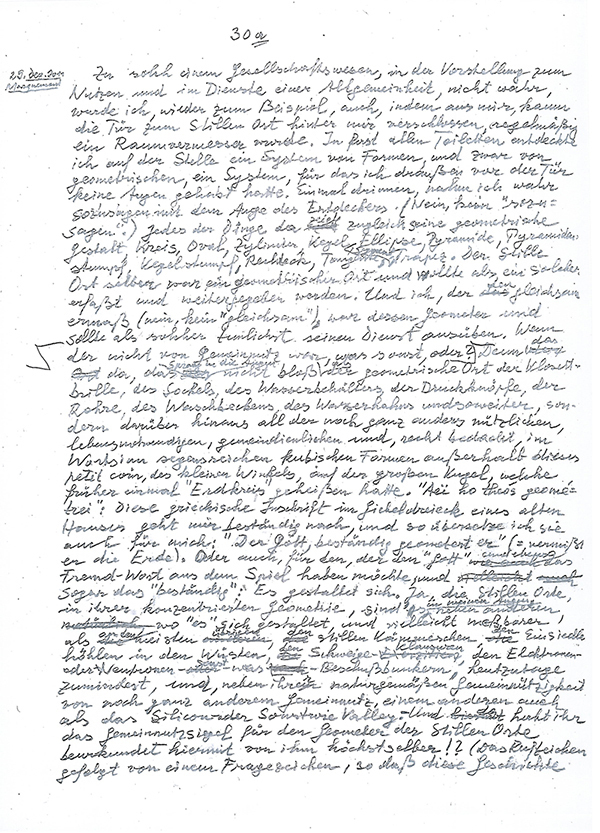 30a
25. Dez. 2011
Zu solch einem Gesellschaftswesen, in der Vorstellung zum
Nutzen und im Dienste einer Allgemeinheit, nicht wahr,
wurde ich, wieder zum Beispiel, auch, indem aus mir, kaum
die Tür zum Stillen Ort hinter mir verschlossen, regelmäßig
ein Raumvermesser wurde. In fast allen Toiletten entdeckte
ich auf der Stelle ein System von Formen, und zwar von
geometrischen, ein System, für das ich draußen vor der Tür
keine Augen gehabt hatte. Einmal drinnen, nahm ich wahr
sozusagen mit dem Auge des Entdeckers. (Nein, kein "sozu=
sagen".) Jedes der Dinge da zugleich seine geometrische
Gestalt Kreis, Oval, Zylinder, Kegel, Ellipse, Pyramide, Pyramiden
stumpf, Kegelstumpf, Rechteck, Der Stille
Ort selber war ein geometrischer Ort und wollte als ein solcher
erfaßt und weitergegeben werden. Und ich, der gleichsam
ermaß (nein, kein "gleichsam"), war dessen Geometer und
sollte als solcher tunlichst seinen Dienst ausüben. Wenn
der nicht von Gemeinnutz war, was sonst, oder? Denn
da, das nicht bloß die geometrische Ort der Klosett-
brille, des Sockels, des Wasserbehälters, der Druckknöpfe, der
Rohre, des Waschbeckens, des Wasserhahns undsoweiter, son-
dern darüber hinaus all der noch ganz anders nützlichen,
lebensnotwendigen, gemeindienlichen und, recht bedacht, im
Wortsinn segensreichen kubischen Formen außerhalb dieses
petit coin, des kleinen Winkels, auf der großen Kugel, welche
früher einmal "Erdkreis" geheißen hatte. "Aei ho theos geome-
trei": Diese griechische Inschrift im Giebeldreieck eines alten
Hauses geht mir beständig nach, und so übersetze ich sie
auch für mich: "Der Gott, beständig geometert er" (= vermißt
er die Erde). Oder auch, für den, der den "Gott" das
Fremd-Wort aus dem Spiel haben möchte, und
Sogar das "beständig": Es gestaltet sich. Ja, die Stillen Orte,
in ihrer konzentrierten Geometrie, sind
wo "es" sich gestaltet, und vielleicht meßbarer,
als meisten stillen Kämmerchen Einsiedler
höhlen in den Wüsten, Schweige- den Elektronen-
oder Neutronen- was -Beschußbunkern, heutzutage
zumindest, und, neben ihrer naturgemäßen Gemeinnützigkeit
von noch ganz anderem Gemeinnutz, einem anderen auch
als das Silicon oder Sonstwie Valley. Und habt ihr
das Gemeinnutzsiegel für den Geometer der Stillen Orte
beurkundet hiermit von ihm höchstselber!? (Das Rufzeichen
gefolgt von einem Fragezeichen, so daß diese Geschichte